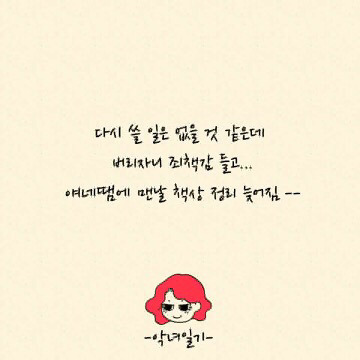 다시 쓸 일은 없을 것 같은데
버리자니 죄책감 들고...
얘네땜에 맨날 책상 정리 늦어짐 --
-악녀일기-